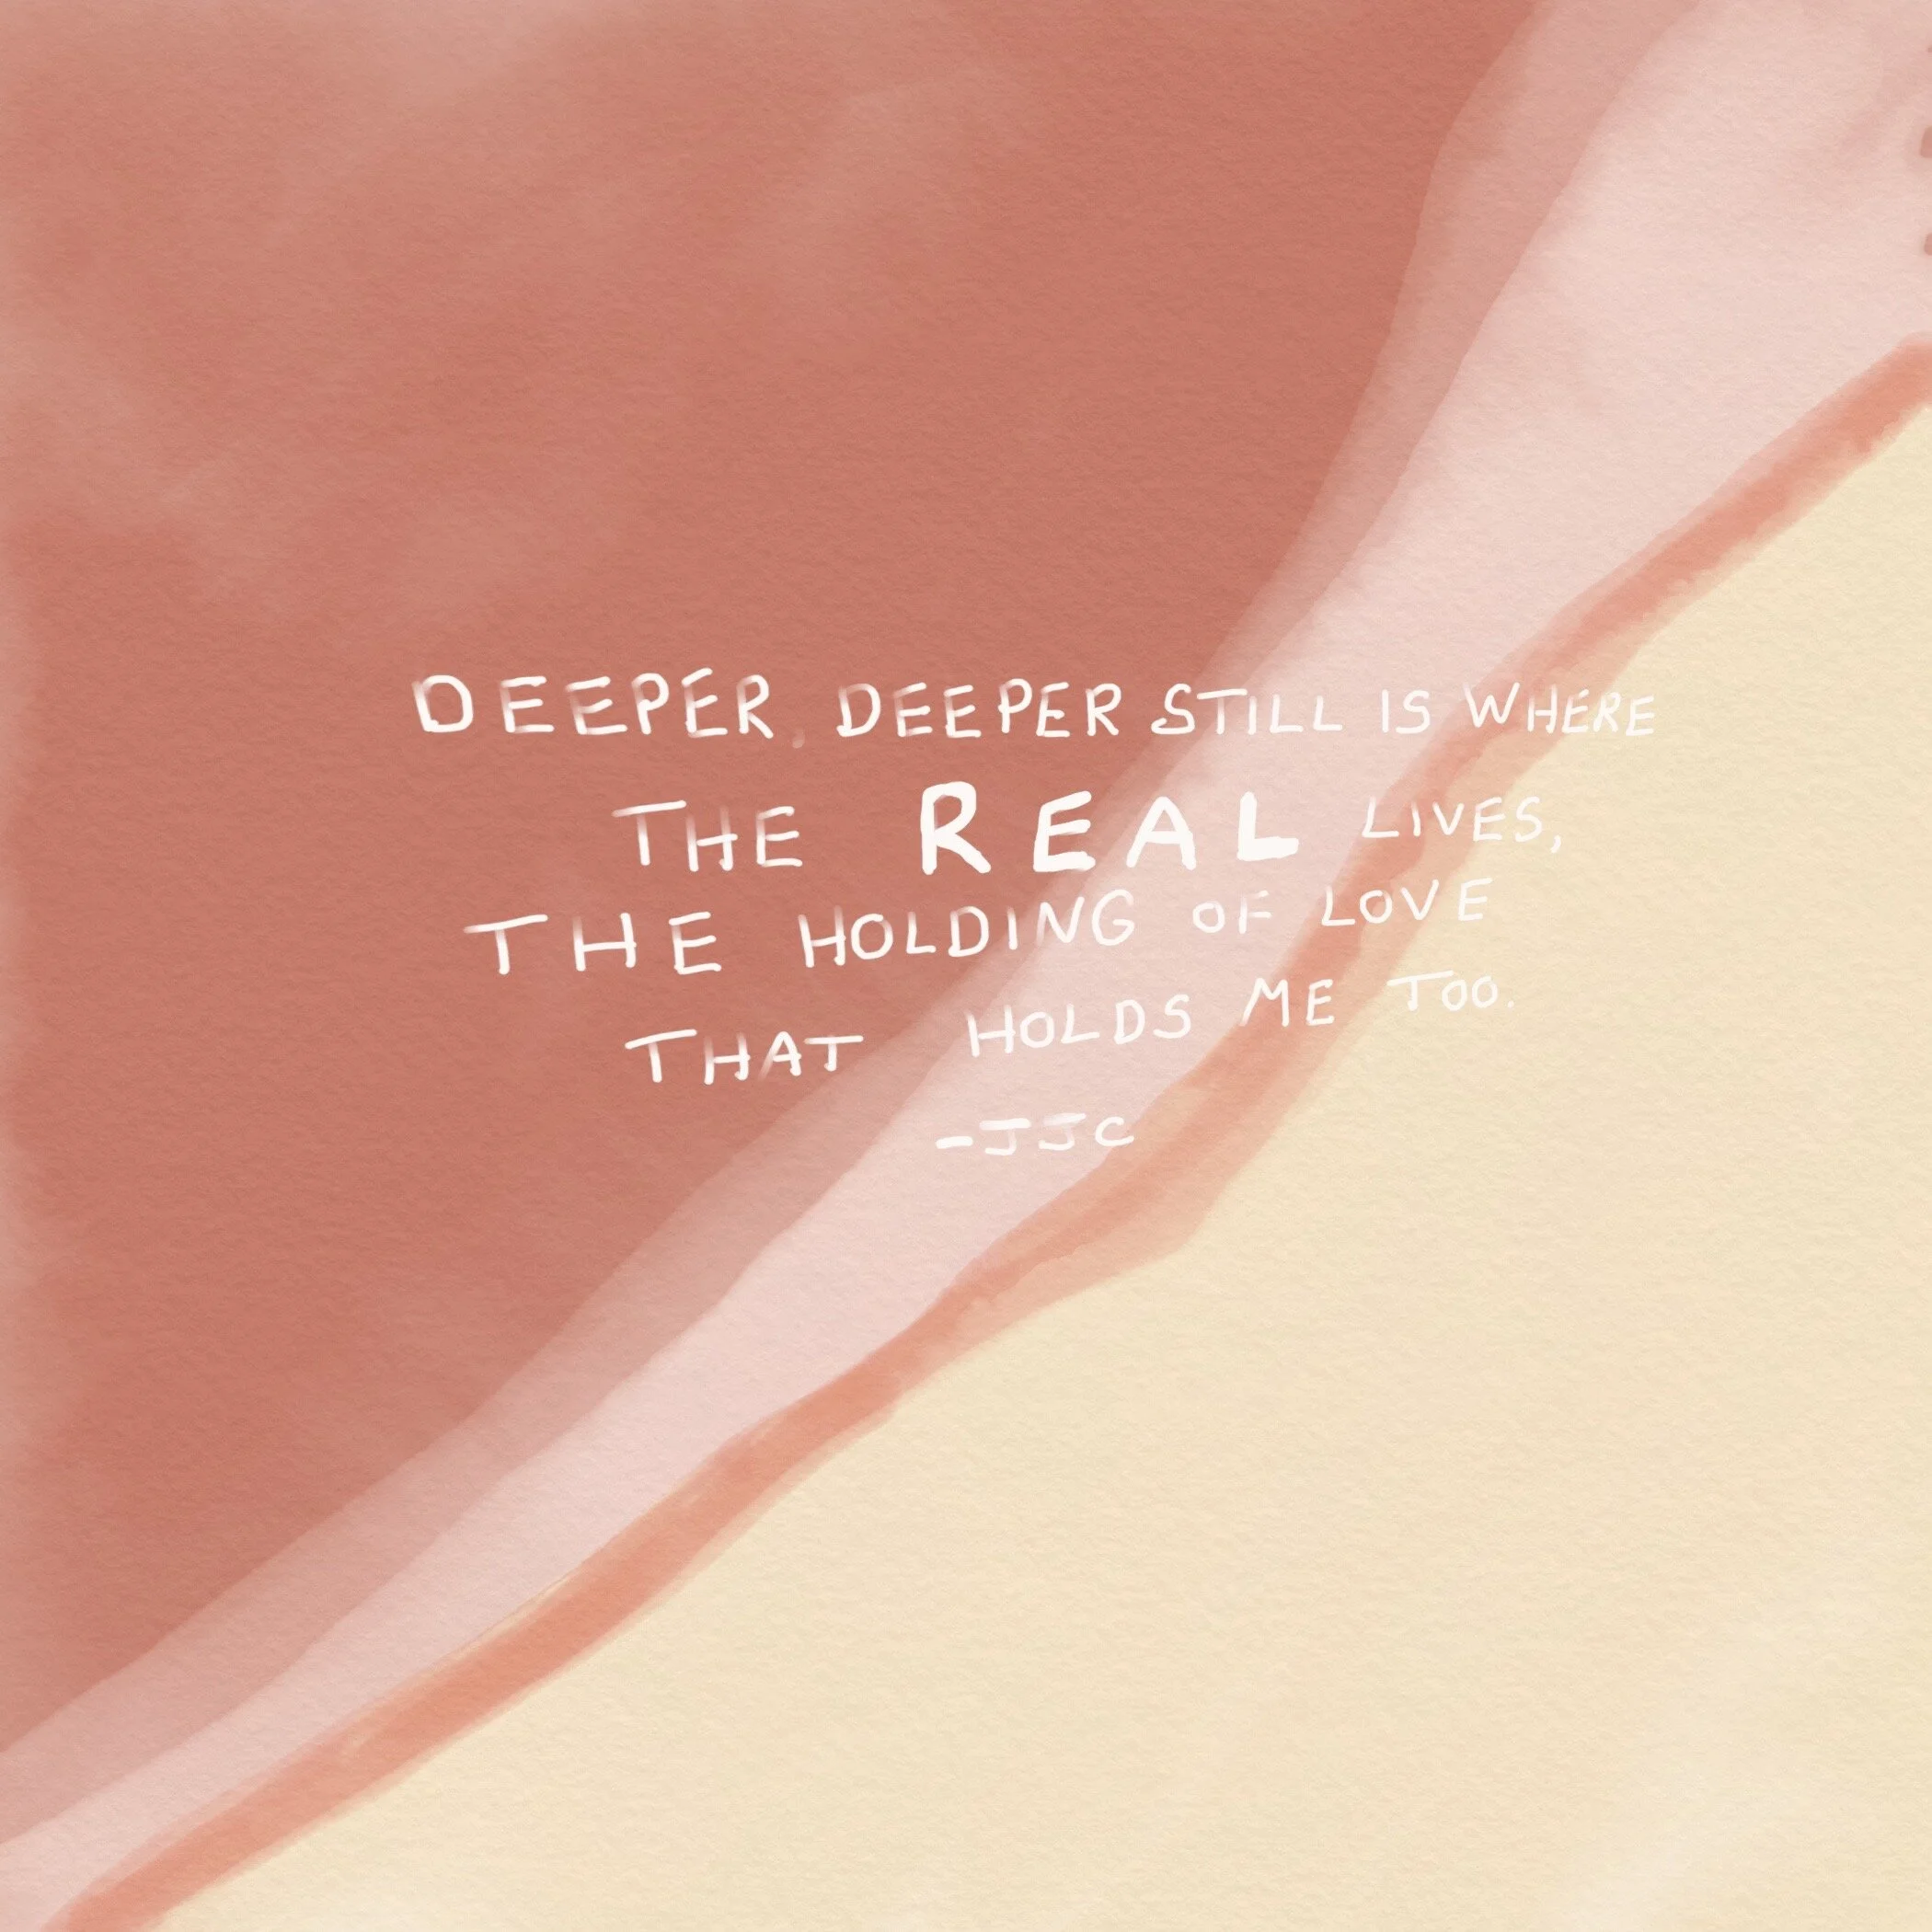 DEEPER, DEEPER STILL IS WHERE
THE REAL LIVES,
THE HOLDING OF LOVE
THAT HOLDS ME TOO.
-JJC